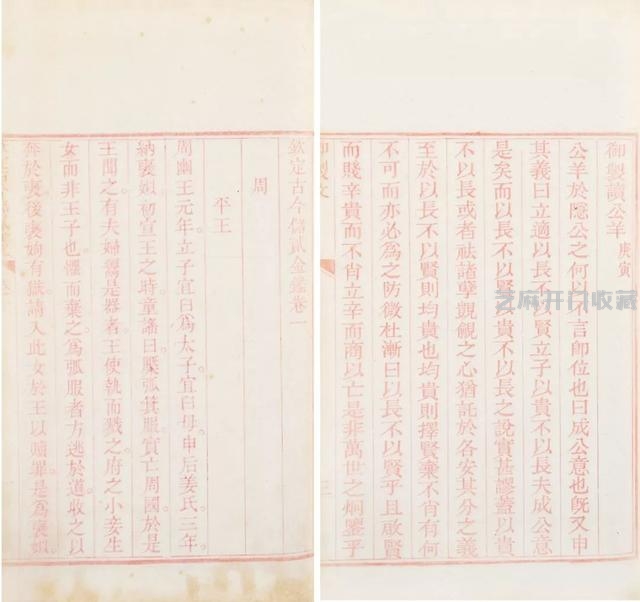 御製讀公羊 庚寅
公羊於隱公之何以不言卽位也曰成公意也旣又申
其義曰立適以長不以賢立子以貴不以長夫成公意
是矣而以長不以賢以貴不以長之說實甚謬蓋以貴
不以長或者祛諸孽覬覦之心猶託於各安其分之義
至於以長不以賢則均貴也均貴則擇賢棄不肖有何
不可而亦必為之防微杜漸曰以長不以賢乎且啟賢
而賤辛貴而不肖立辛而商以亡是非萬世之炯鑒乎
御製文
三
欽定古今儲貳金鑑卷一
周
平王
周幽王元年立子宜臼為太子宜臼母申后姜氏三年
納襃姒初宣王之時童謠曰檿弧箕服實亡周國於是
王聞之有夫婦鬻是器者王使執而戮之府之小妾生
女而非王子也懼而棄之為弧服者方逃於道收之以
奔於襃後襃姁有獄請入此女於王以贖罪是為襃姒
芝麻开门收藏